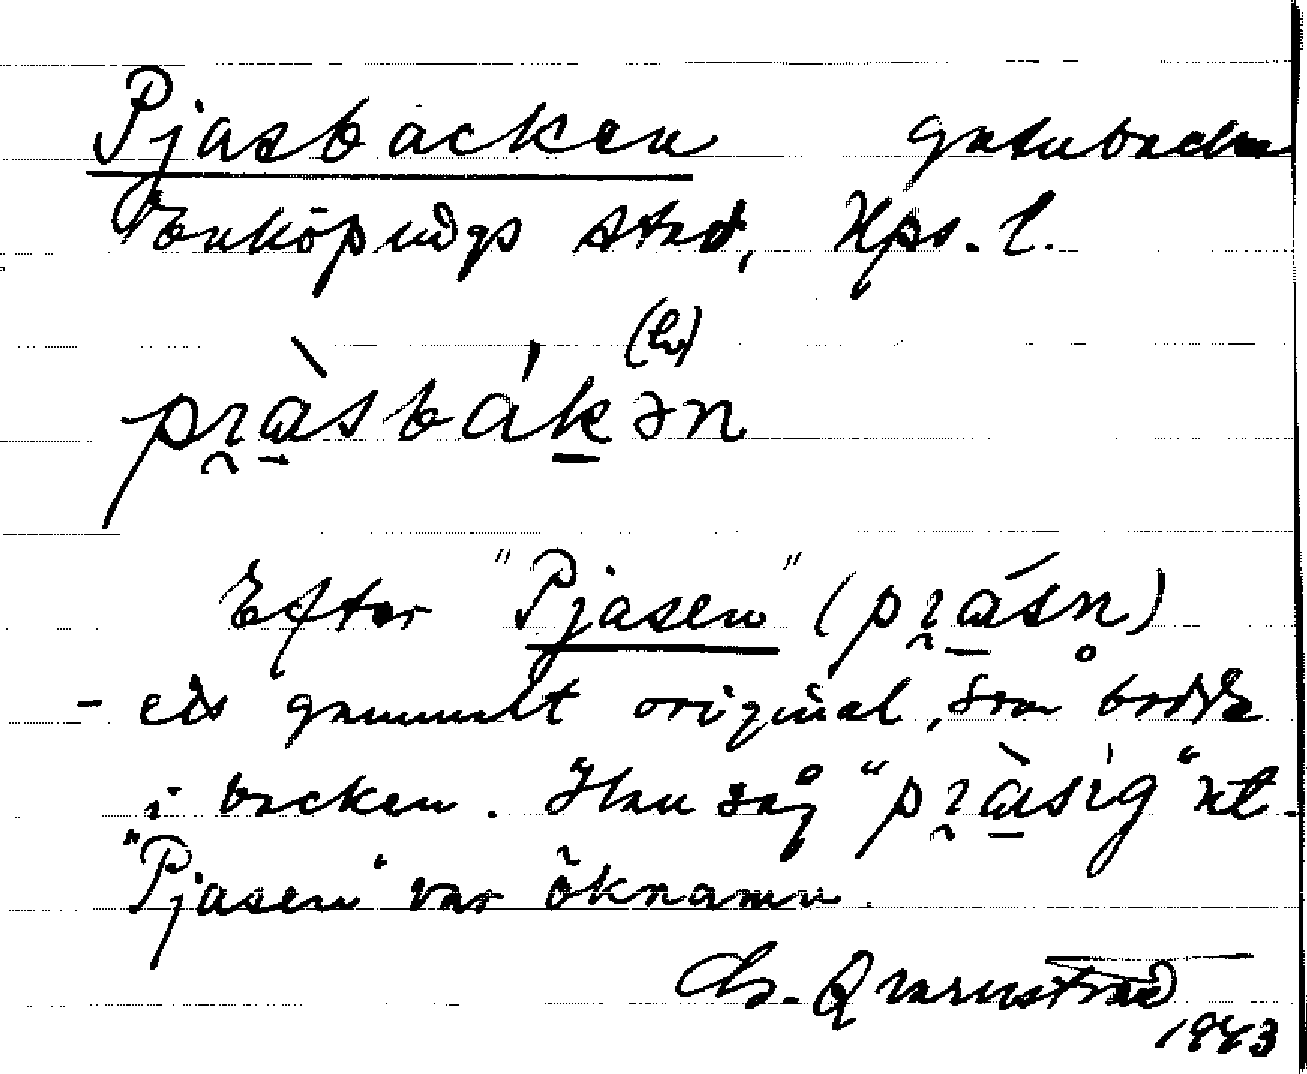 Pjasbacken gatubacke
Enköpings stad, Ups. l.
(h)
pɹ̯àsbákən
Efter "Pjasen" (pɹ̯ásn̥)
- ett gammalt original, som bodde
i backen. Han såg "pɹ̯àsig" ut.
"Pjasen" var öknamn.
Qvarnstrad
1943